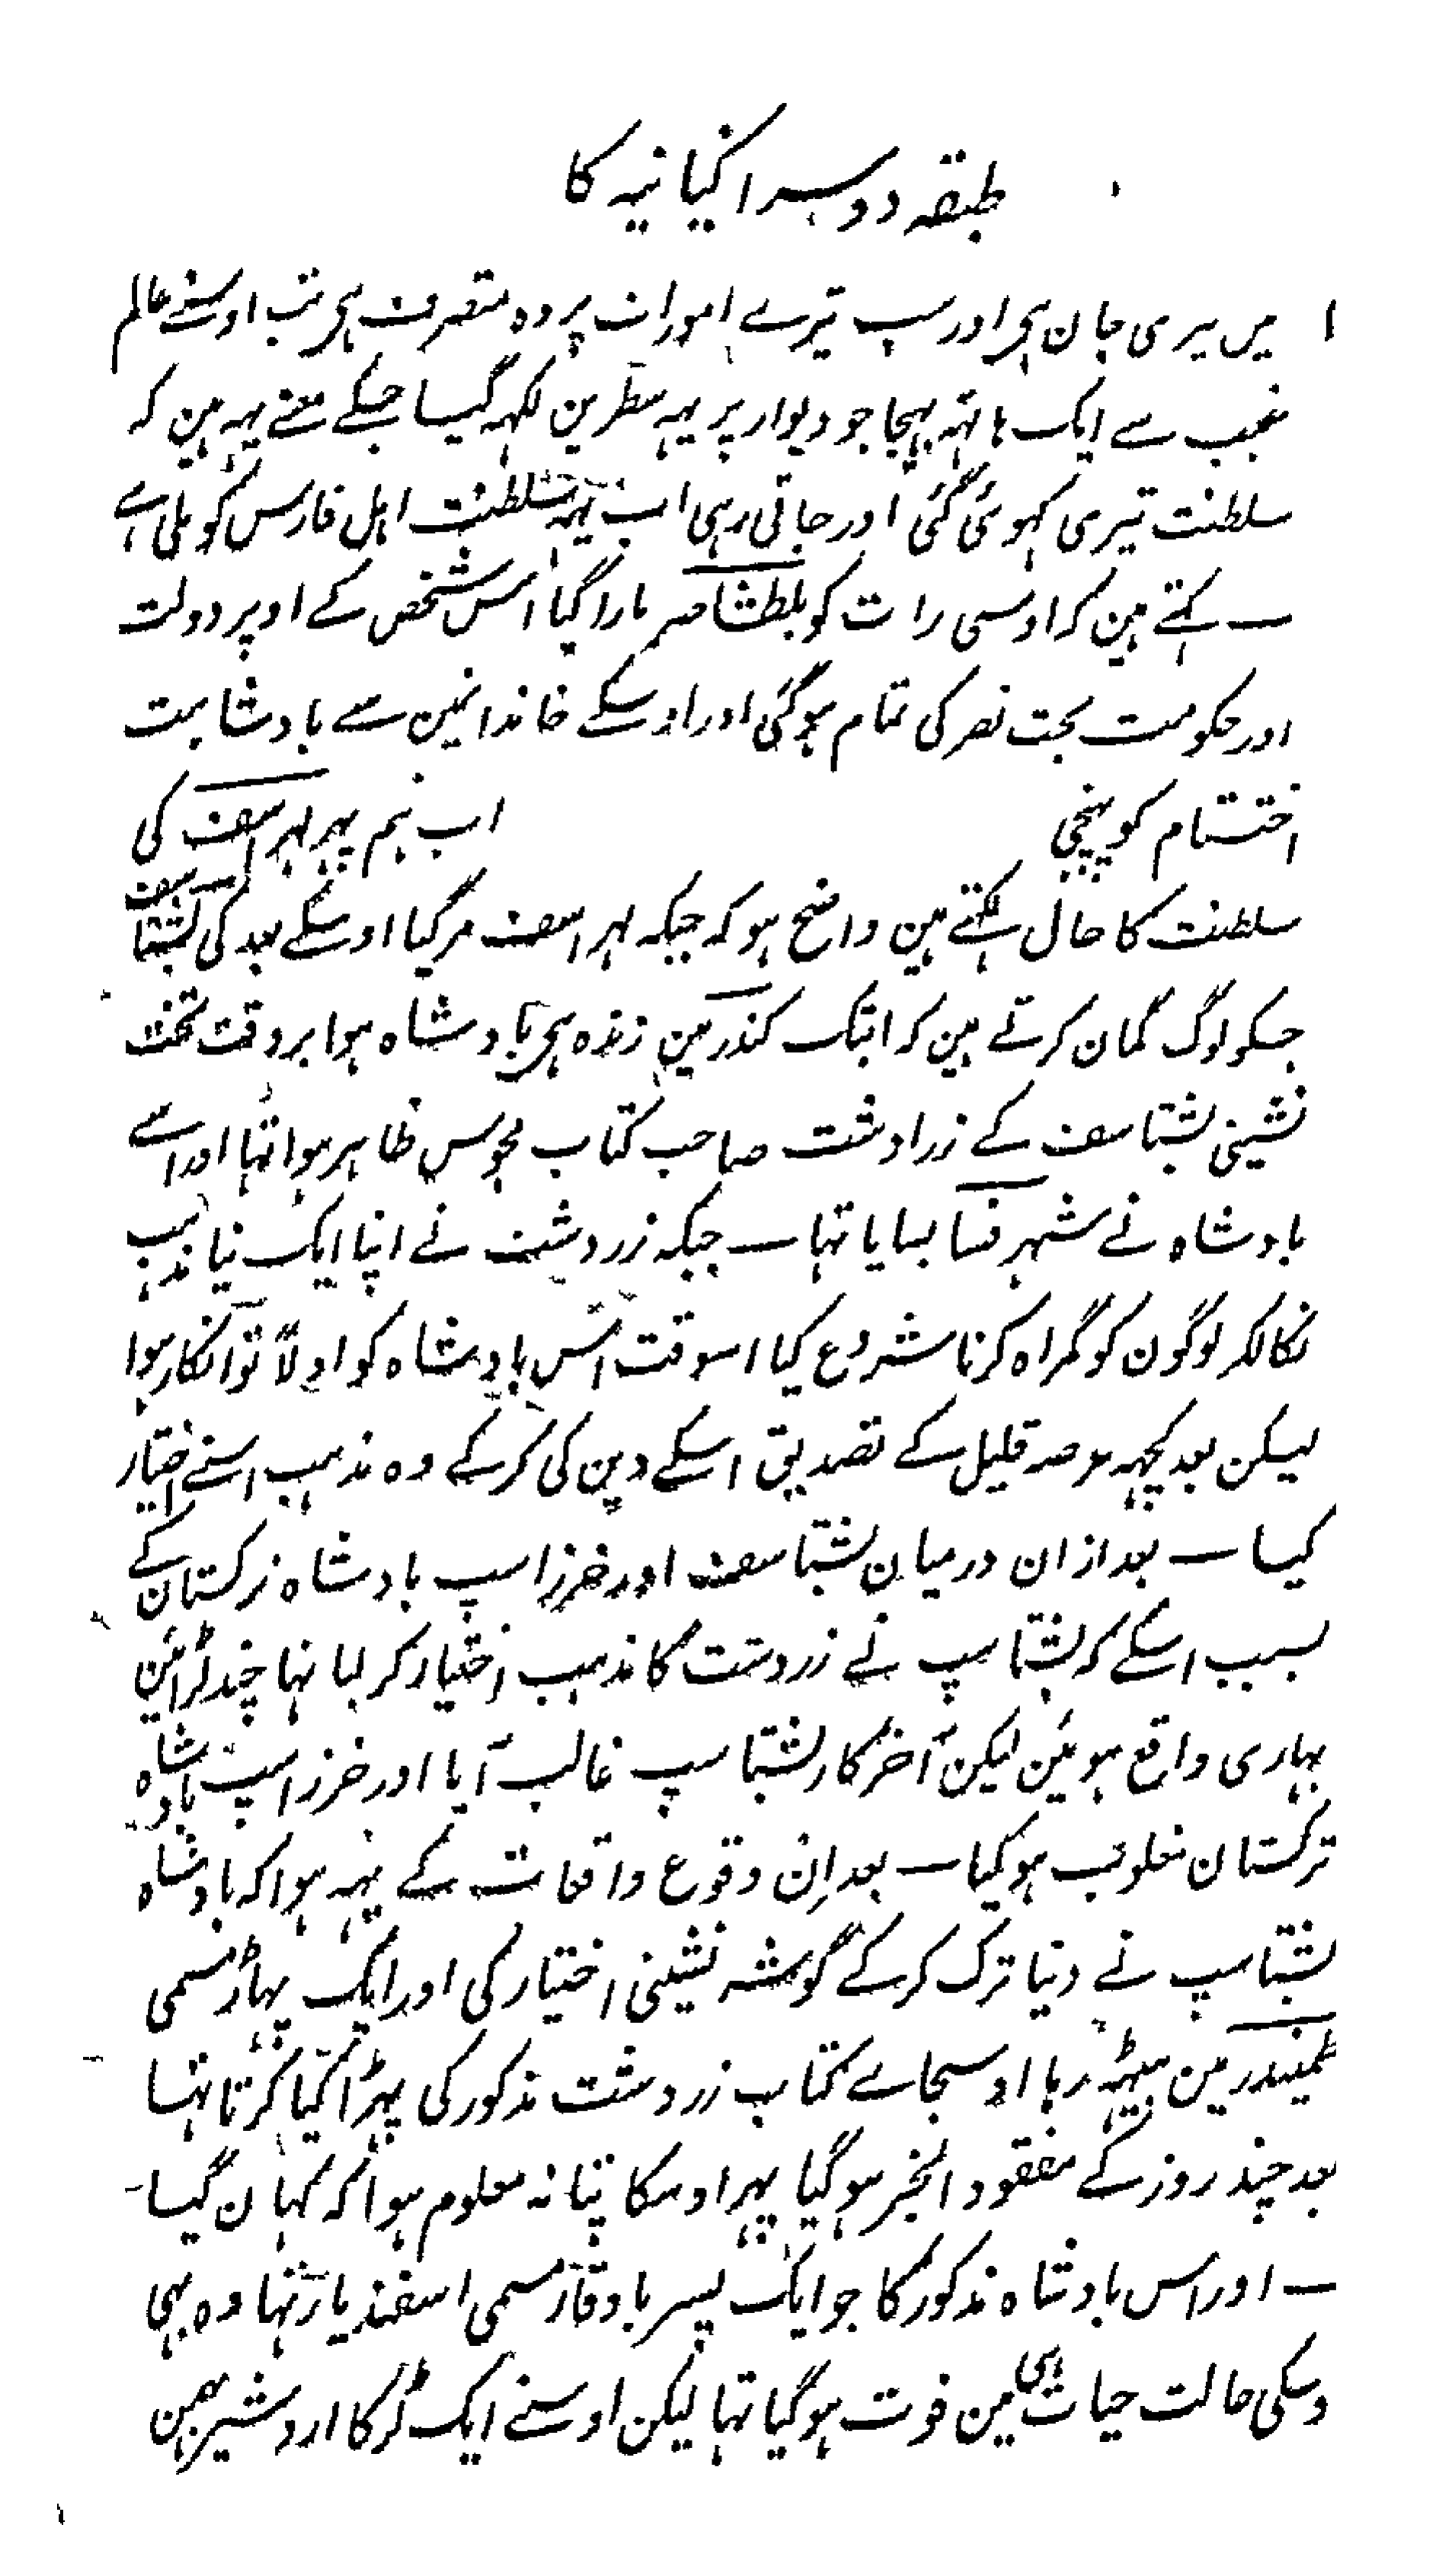 طبقہ دوسرا کیانیہ کا
میں تیری جان ہی اور سب تیرے امورات پر وہ متصرف ہی تب اوسنے عالم
غیب سے ایک ہاتہہ بہیجا جو دیوار پر یہہ سطرین لکہہ گیا جسکے معنے یہہ ہین کہ
سلطنت تیری کہوئی گئی اور جاتی رہی اب یہہ سلطنت اہل فارس کو ملی ہے
ــ کہتے ہین کہ اوسی رات کو بلطشاصر مارا گیا اس شخص کے اوپر دولت
اور حکومت بخت نصر کی تمام ہوگئی اور اوسکے خاندانین سے بادشاہت
اختتام کو پہنچی اب ہم پہر لہراسف کی
سلطنت کا حال لکہتے ہین واضح ہو کہ جبکہ لہراسف مرگیا اوسکے بعد کی بشتاسف
جسکو لوگ گمان کرتے ہین کہ ابتک کندر مین زندہ ہی بادشاہ ہوا بروقت تخت
نشینی بشتاسف کے زرادشت صاحب کتاب مجوس ظاہر ہوا تہا اور اسے
بادشاہ نے شہر فسا بسایا تہا ــ جبکہ زردشت نے اپنا ایک نیا مذہب
نکالکر لوگون کو گمراہ کرنا شروع کیا اسوقت اس بادشاہ کو اولاً تو انکار ہوا
لیکن بعد کچہہ عرصہ قلیل کے تصدیق اسکے دین کی کرکے وہ مذہب اسنے اختیار
کیا ــ بعد ازان درمیان بشتاسف اور خرزاسپ بادشاہ ترکستان کے
بسبب اسکے کہ بشتاسپ نے زردشت کا مذہب اختیار کرلیا تہا چند لڑائین
بہاری واقع ہوئین لیکن آخرکار بشتاسپ غالب آیا اور خرزاسپ بادشاہ
ترکستان مغلوب ہوگیا ــ بعد ان وقوع واقعات کے یہہ ہوا کہ بادشاہ
بشتاسپ نے دنیا ترک کرکے گوشہ نشینی اختیار کی اور ایک پہاڑ مسمی
طمیندر مین بیٹہہ رہا اوسجاے کتاب زردشت مذکور کی پہڑا کیا کرتا تہا
بعد چند روز کے مفقود الخبر ہوگیا پہر اوسکا پتا نہ معلوم ہوا کہ کہان گیا ـ
ــ اور اس بادشاہ مذکور کا جو ایک پسر باوقار مسمی اسفندیار تہا وہ بہی
وسکی حالت حیات ہی مین فوت ہوگیا تہا لیکن اوسنے ایک لڑکا اردشیر بہمن